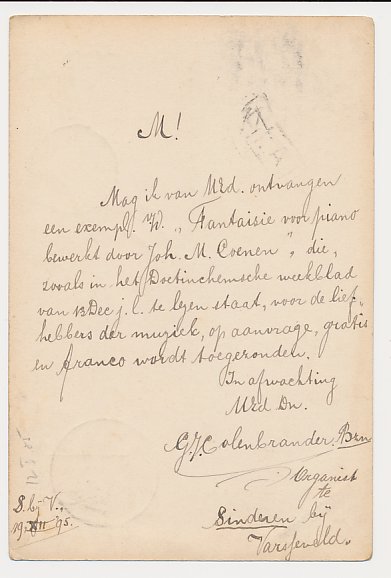 M!
Mag ik van UEd. ontvangen
een exempl. v/d. „Fantaisie voor piano
bewerkt door Joh. M. Coenen", die,
zooals in het Doetinchemsche weekblad
van 13 Dec j.l. te lezen staat, voor de lief-
hebbers der muziek, op aanvrage, gratis
en franco wordt toegezonden.
In afwachting
UEd Dn.
G.J. Colenbrander. Bzn
Organist
te
Sinderen bij
Varsseveld.
S. bij V.,
19/XII 95.